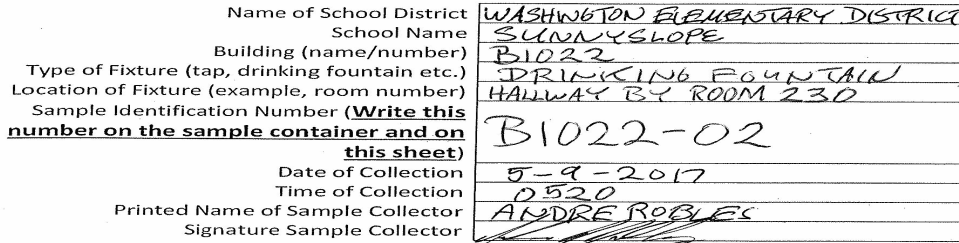 Name of School District WASHINGTON ELEMENTARY DISTRIC
School Name SUNNYSLOPE
Building (name/number) B1022
Type of Fixture (tap, drinking fountain etc.) DRINKING FOUNTAIN
Location of Fixture (example, room number) HALLWAY BY ROOM 230
Sample Identification Number (Write this
number on the sample container and on
this sheet) B1022-02
Date of Collection 5-9-2017
Time of Collection 0520
Printed Name of Sample Collector ANDRE ROBLES
Signature Sample Collector